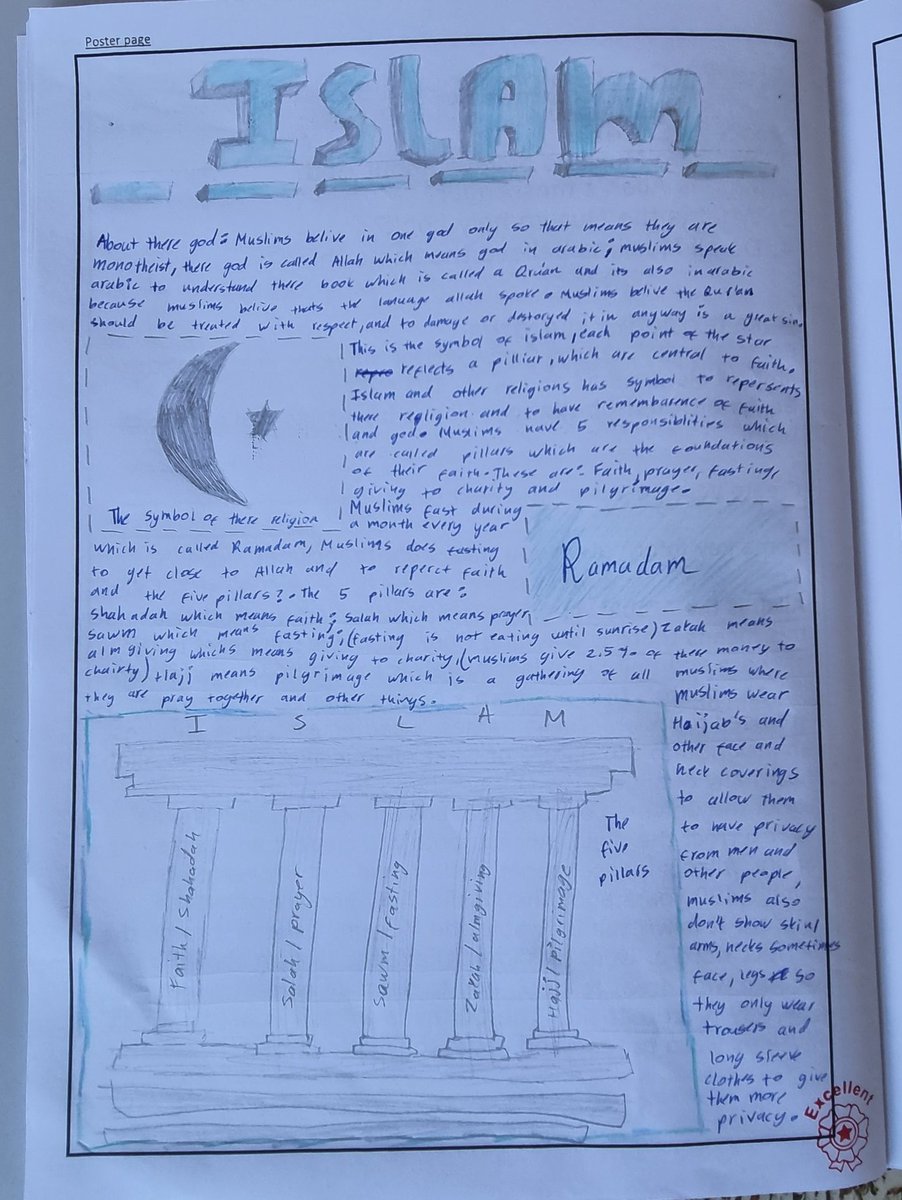 Poster page
ISLAM
About there god: Muslims belive in one god only so that means they are
monotheist, there god is called Allah which means god in arabic; muslims speak
arabic to understand there book which is called a Qru'an and its also in arabic
because muslims belive thats the lanuage allah spoke. Muslims belive the Qur'an
should be treated with respect, and to damage or destoryed it in anyway is a great sin.
The symbol of there religion
This is the symbol of islam, each point of the star
reflects a pilliar, which are central to faith.
Islam and other religions has symbol to repersents
there regligion and to have remembarence of faith
and god. Muslims have 5 responsiblities which
are called pillars which are the foundations
of their faith. These are: Faith, prayer, fasting,
giving to charity and pilgrimage.
Muslims fast during
a month every year
which is called Ramadam, Muslims does fasting
to get close to Allah and to reperct faith
and the five pillars?. The 5 pillars are:
Ramadam
Shahadah which means faith; Salah which means prayer,
Sawm which means fasting; (fasting is not eating until sunrise) Zakah means
alm giving whichs means giving to charity, (muslims give 2.5% of there money to
chairty) Hajj means pilgrimage which is a gathering of all muslims where
they are pray together and other things.
muslims wear
Haijab's and
other face and
neck coverings
to allow them
to have privacy
from men and
other people,
muslims also
don't show skin/
arms, necks sometimes
face, legs so
they only wear
trousers and
long sleeve
clothes to give
them more
privacy.
I S L A M
Faith / Shahadah
Salah / prayer
Sawm / Fasting
Zakah / almgiving
Hajj / pilgrimage
The
five
pillars
Excellent